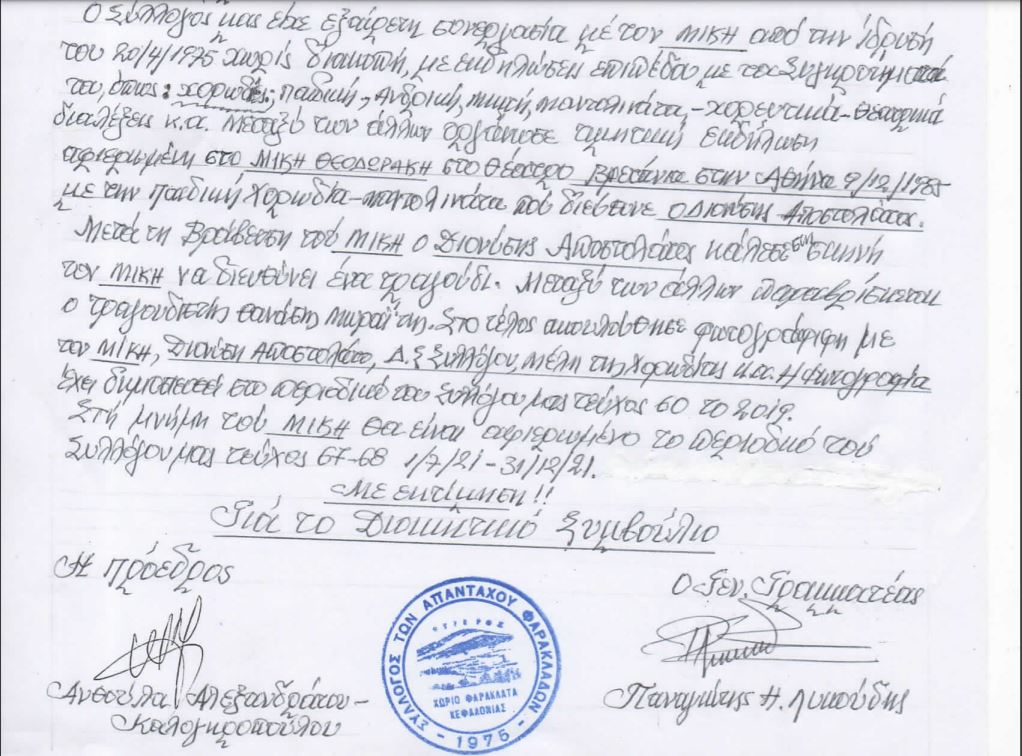 Ο Σύλλογός μας είχε εξαίρετη συνεργασία με τον ΜΙΚΗ από την ίδρυσή
του 20/4/1975 χωρίς διακοπή, με εκδηλώσεις επιπέδου με τα Συγκροτήματά
του, όπως: χορωδίες, Παιδική, Ανδρική, Μικτή, Μαντολινάτα, - Χορευτικά - Θεατρικά
διαλέξεις κ.α. Μεταξύ των άλλων οργάνωσε τιμητική εκδήλωση
αφιερωμένη στο ΜΙΚΗ ΘΕΟΔΩΡΑΚΗ στο Θέατρο Βρετάνια στην Αθήνα 9/12/1985
με την παιδική Χορωδία - μαντολινάτα που διεύθυνε ο Διονύσης Αποστολάτος.
Μετά τη Βράβευση του ΜΙΚΗ ο Διονύσης Αποστολάτος κάλεσε στη σκηνή
τον ΜΙΚΗ να διευθύνει ένα τραγούδι. Μεταξύ των άλλων παραβρίσκεται
ο τραγουδιστής Θανάσης Μωραΐτης. Στο τέλος ακολούθησε φωτογράφιση με
τον ΜΙΚΗ, Διονύση Αποστολάτο, Δ.Σ Συλλόγου, Μέλη της Χορωδίας κ.α. Η Φωτογραφία
έχει δημοσιευτεί στο περιοδικό του Συλλόγου μας τεύχος 60 το 2019.
Στη μνήμη του ΜΙΚΗ θα είναι αφιερωμένο το περιοδικό του
Συλλόγου μας τεύχος 67-68 1/7/21 - 31/12/21.
Με εκτίμηση!!
Για το Διοικητικό Συμβούλιο
Η πρόεδρος
Ο Γεν. Γραμματέας
ΣΥΛΛΟΓΟΣ ΤΩΝ ΑΠΑΝΤΑΧΟΥ ΦΑΡΑΚΛΑΔΩΝ
ΧΩΡΙΟ ΦΑΡΑΚΛΑΤΑ
ΚΕΦΑΛΟΝΙΑΣ
- 1975 -
Ανθούλα Αλεξανδράτου -
Καλογηροπούλου
Παναγιώτης Η. Λυκούδης